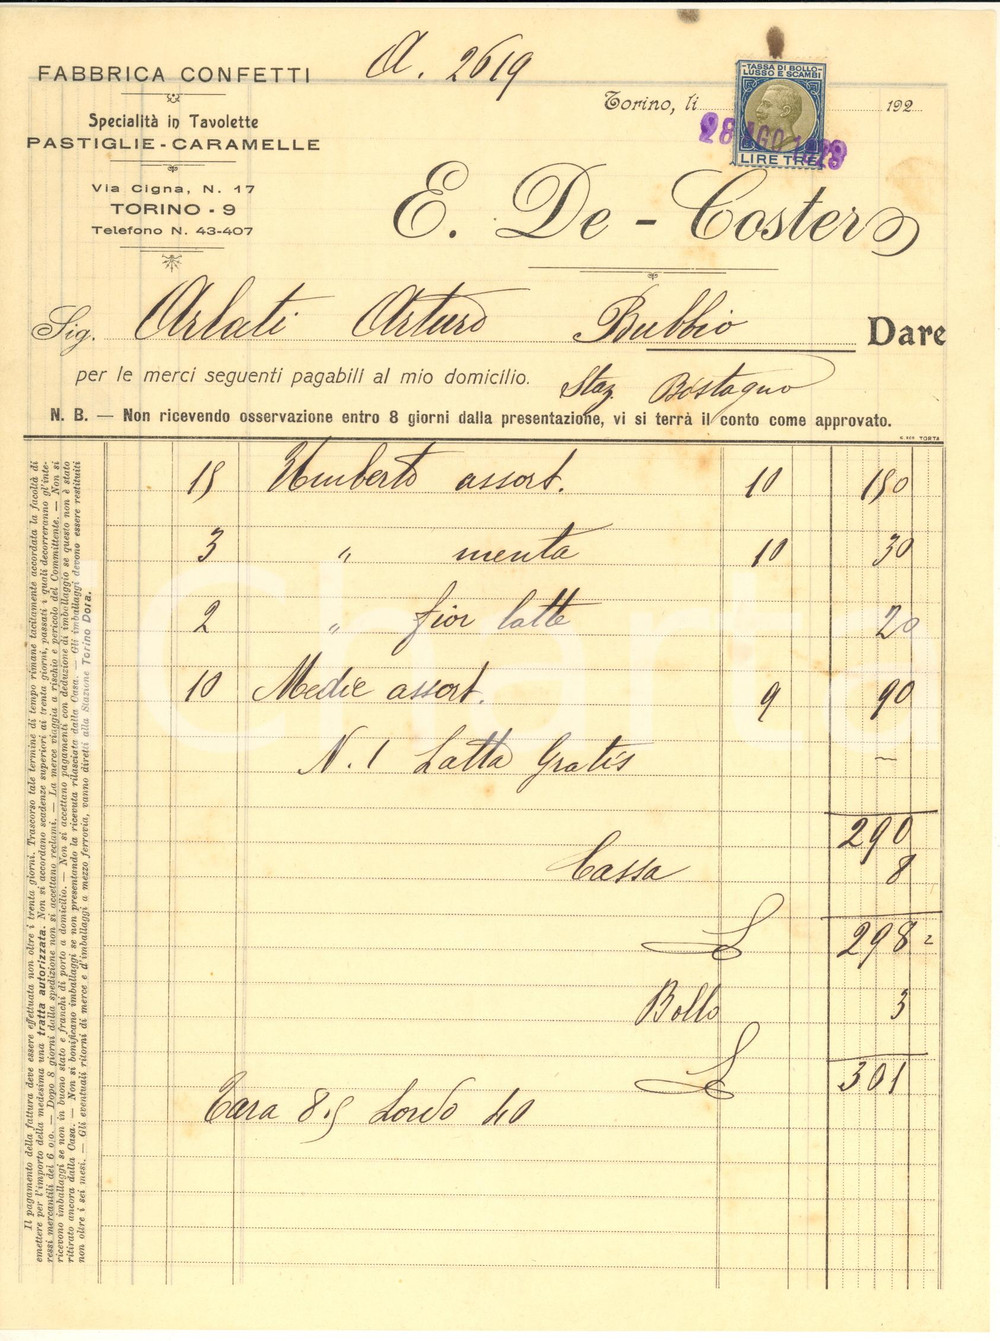 A. 2619
FABBRICA CONFETTI
Specialità in Tavolette
PASTIGLIE - CARAMELLE
Via Cigna, N. 17
TORINO - 9
Telefono N. 43-407
Torino, li 192
TASSA DI BOLLO
LUSSO E SCAMBI
LIRE TRE
28 AGO 1928
E. De-Coster
Sig. Arlati Arturo Bubbio Dare
per le merci seguenti pagabili al mio domicilio. Staz. Bistagno
N. B. — Non ricevendo osservazione entro 8 giorni dalla presentazione, vi si terrà il conto come approvato.
15 Umberto assort. 10 150
3 " menta 10 30
2 " fior latte 20
10 Medie assort. 9 90
N. 1 Latta Gratis —
290
Cassa 8
L 298 =
Bollo 3
L 301
Tara 8.5 Lordo 40
Il pagamento della fattura deve essere effettuata non oltre i trenta giorni. Trascorso tale termine di tempo rimane tacitamente accordata la facoltà di
emettere per l'importo della medesima una tratta autorizzata. Non si accordano scadenze superiori ai trenta giorni, passati i quali decorreranno gl'inte-
ressi mercantili del 6 o.o. — Dopo 8 giorni dalla spedizione non si accettano reclami. — La merce viaggia a rischio e pericolo del Committente. — Non si
ricevono imballaggi se non in buono stato e franchi di porto a domicilio. — Non si accettano pagamenti con deduzione di imballaggio se questo non è stato
ritirato ancora dalla Casa. — Non si bonificano imballaggi se non presentando la ricevuta rilasciata dalla Casa. — Gli imballaggi devono essere restituiti
non oltre i sei mesi. — Gli eventuali ritorni di merce e d'imballaggi a mezzo ferrovia, vanno diretti alla Stazione Torino Dora.